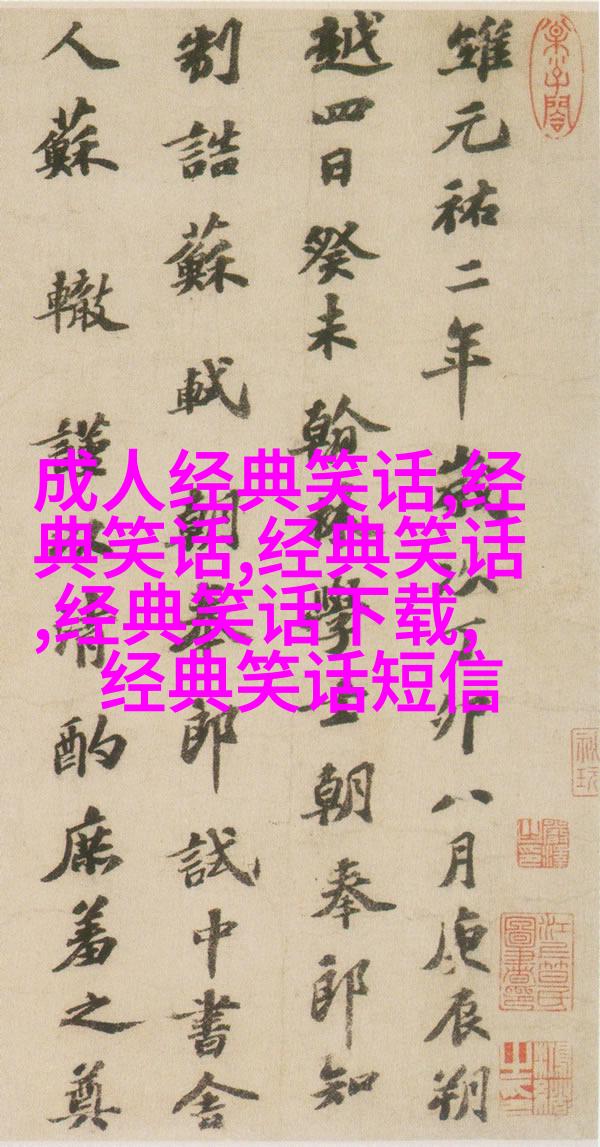 維元祐二年歲次丁卯八月庚辰朔
越四日癸未翰林學士朝奉郎知
制誥蘇軾朝奉郎試中書舍
人蘇轍謹以清酌庶羞之奠
成人经典笑话,经
典笑话,经典笑话
,经典笑话下载,
经典笑话短信